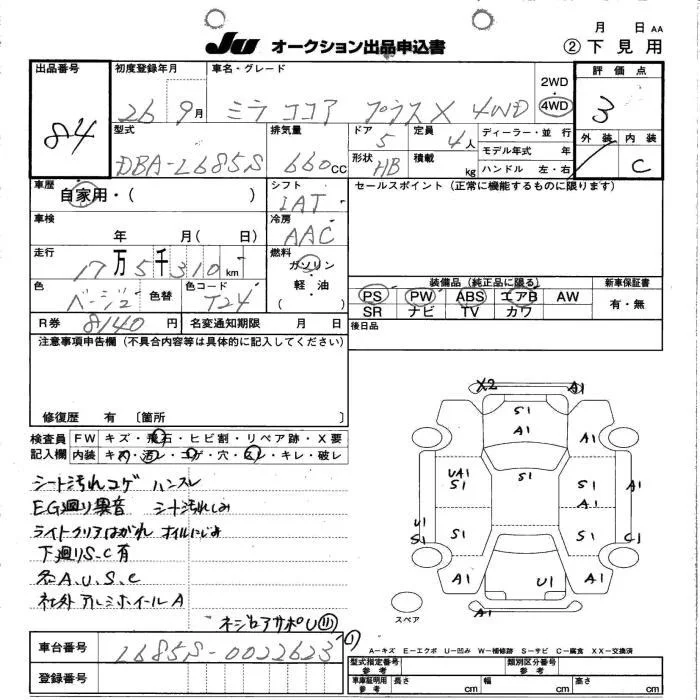 月 日 AA
JU オークション出品申込書 ② 下見用
出品番号 84
初度登録年月 26 9月
車名・グレード ミラ ココア プラスX 4WD
2WD・4WD
評価点 3
外装 内装 C
型式 DBA-L685S
排気量 660cc
ドア 5
定員 4人
形状 HB
積載 kg
ディーラー・並行
モデル年式 年
ハンドル 左・右
車歴 自家用・( )
シフト IAT
セールスポイント(正常に機能するものに限ります)
車検 年 月( 日)
冷房 AAC
走行 17万5千310km
燃料 ガソリン・軽油・( )
色 ベージュ
色替
色コード T24
装備品(純正品に限る)
新車保証書
PS PW ABS エアB AW
有・無
SR ナビ TV カワ
R券 8140円
名変通知期限 月 日
後日品
注意事項申告欄(不具合内容等は具体的に記入してください)
修復歴 有 〔箇所 〕
検査員記入欄
FW キズ・飛石・ヒビ割・リペア跡・X要
内装 キズ・汚レ・コゲ・穴・スレ・キレ・破レ
シート汚れコゲ ハンスレ
EG廻り異音 シート汚れしみ
ライトクリアはがれ オイルにじみ
下廻りS、C有
各A、U、S、C
社外アルミホイールA
X2 A1
S1
A1
A1 A1
UA1
S1
S1
S1
A1
U1
S1
S1 S1
C1
A1 U1 A1
A1
スペア
A-キズ E-エクボ U-凹み W-補修跡 S-サビ C-腐食 XX-交換済
車台番号 L685S-0022623
登録番号
型式指定番号 参考
類別区分番号 参考
車庫証明用 参考 長さ cm 幅 cm 高さ cm